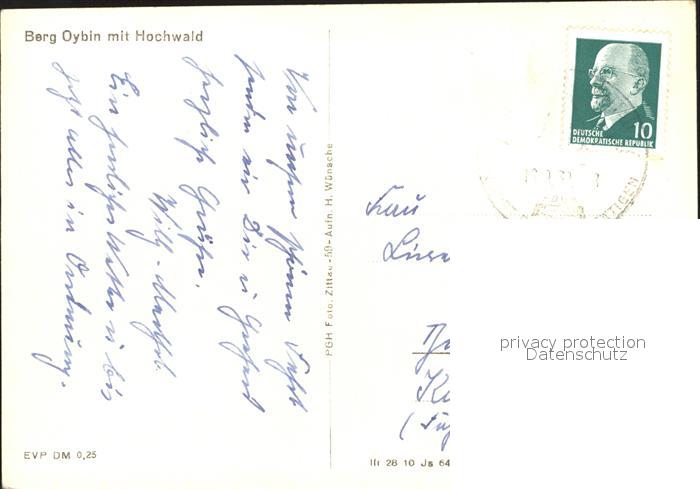 Berg Oybin mit Hochwald
Von unserer schönen Fahrt
senden wir Dir u. Gerhard
herzliche Grüße.
Willy
Ein herrliches Wetter u. bis
jetzt alles in Ordnung.
EVP DM 0,25
PGH Foto, Zittau -59- Aufn. H. Wünsche
DEUTSCHE
DEMOKRATISCHE REPUBLIK
10
Frau
III 28 10 Js 64
privacy protection
Datenschutz